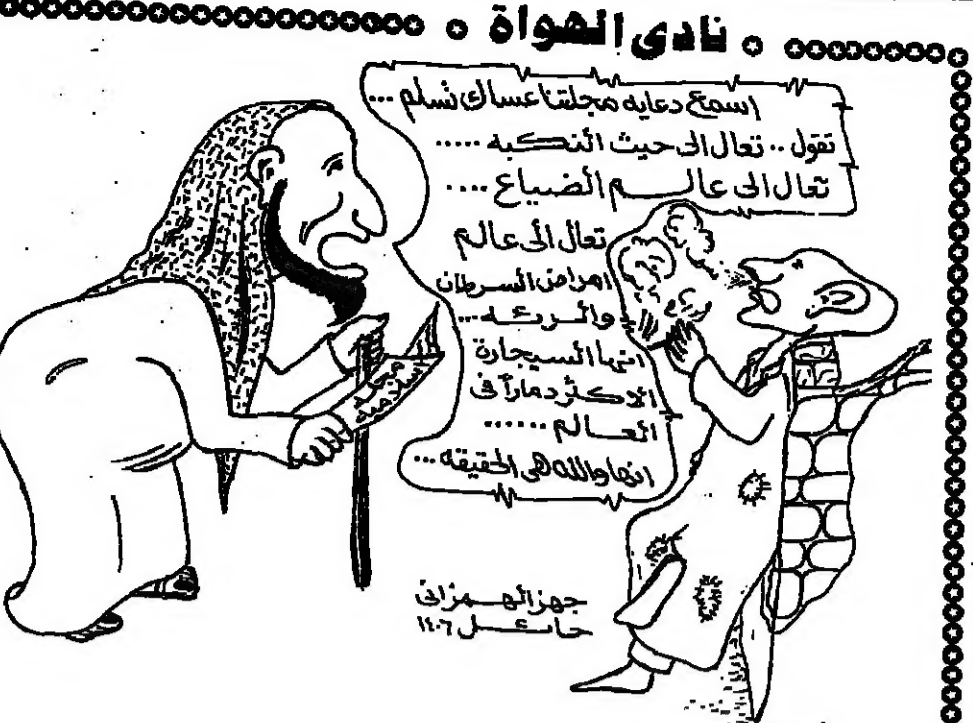 نادى الهواة
اسمع دعايه مجلتنا عساك تسلم ...
تقول .. تعال الى حيث النكبه .....
تعال الى عالــم الضياع ....
تعال الى عالم
امراض السرطان
والــرئــه ...
انها السيجارة
الاكثر دماراً فى
العــالم ......
انها والله هى الحقيقه ...
مجله
اسلاميه
جهز الهــمزانى
حائــل ١٤٠٦